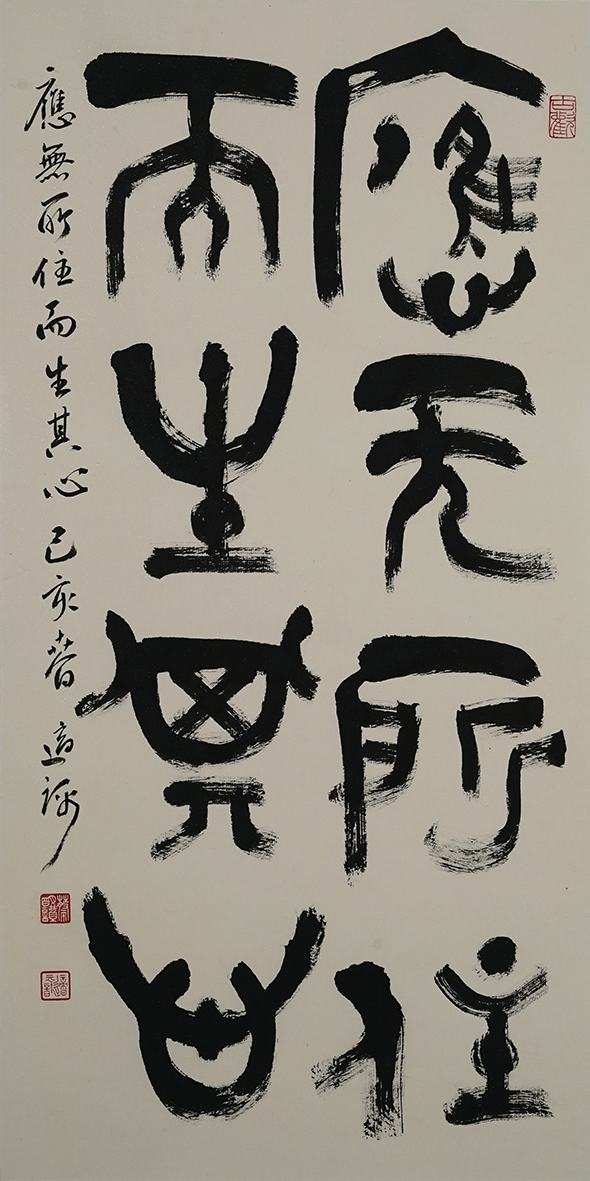 應无所住
而生其心
應無所住而生其心 己亥春